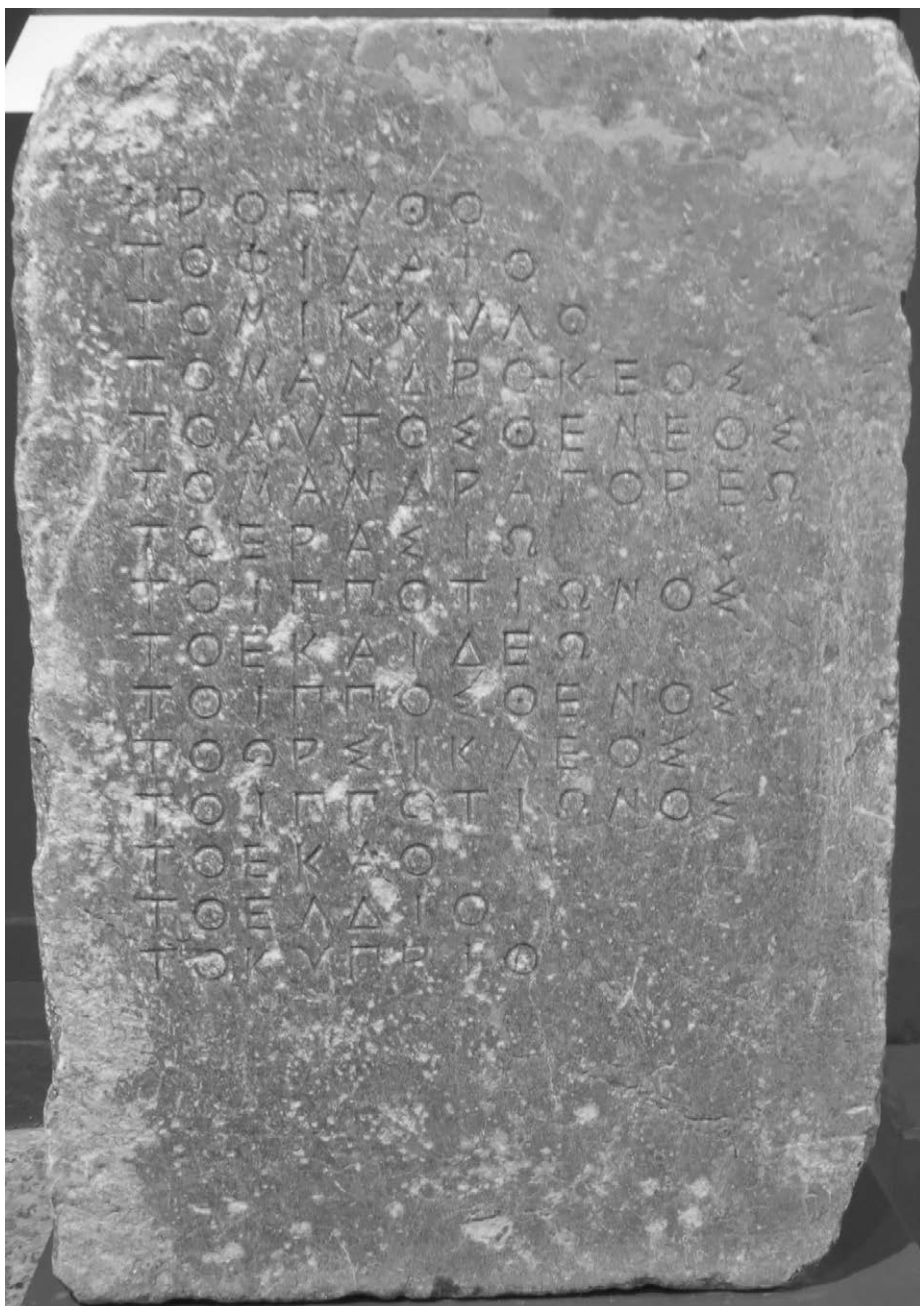 ΗΡΟΠΥΘΟ
ΤΟΦΙΛΑΙΟ
ΤΟΜΙΚΚΥΛΟ
ΤΟΜΑΝΔΡΟΚΕΟΣ
ΤΟΑΥΤΟΣΘΕΝΕΟΣ
ΤΟΜΑΝΔΡΑΓΟΡΕΩ
ΤΟΕΡΑΣΙΩ
ΤΟΙΠΠΟΤΙΩΝΟΣ
ΤΟΕΚΑΙΔΕΩ
ΤΟΙΠΠΟΣΘΕΝΟΣ
ΤΟΩΡΣΙΚΛΕΟΣ
ΤΟΙΠΠΟΤΙΩΝΟΣ
ΤΟΕΚΑΟ
ΤΟΕΛΔΙΟ
ΤΟΚΥΠΡΙΟ